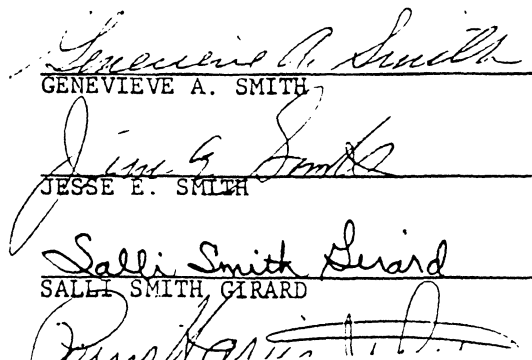 Genevieve A. Smith
GENEVIEVE A. SMITH
Smith
JESSE E. SMITH
Salli Smith Girard
SALLI SMITH GIRARD